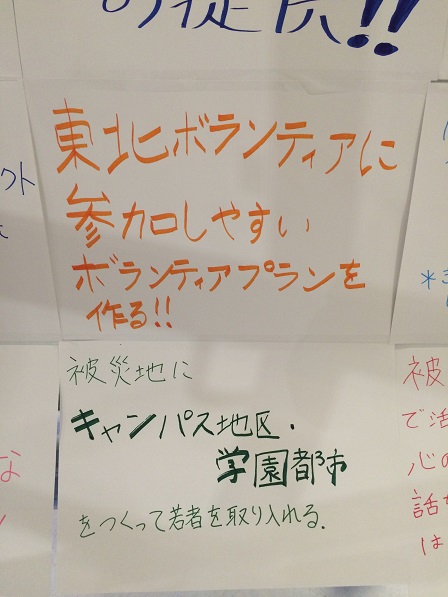 の提供!!
東北ボランティアに
参加しやすい
ボランティアプランを
作る!!
被災地に
キャンパス地区・
学園都市
をつくって若者を取り入れる.
クト
な
被
で活
心の
話
は